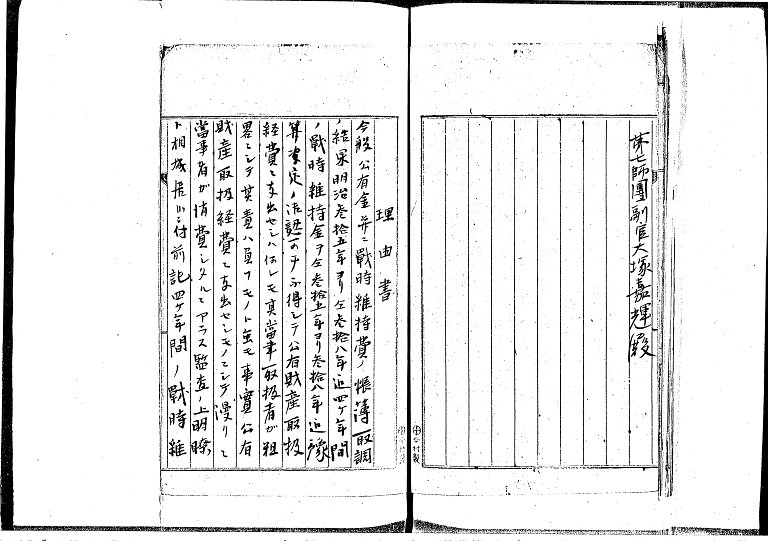 第七師團副官大塚嘉輝殿
理由書
今般公有金并ニ戰時維持費ノ帳簿取調
ノ結果明治叁拾五年ヨリ仝叁拾八年迄四ケ年間
ノ戰時維持金ヲ仝叁拾五年ヨリ叁拾八年迄豫
算査定ノ認可ヲ不得シテ公有財産取扱
経費ニ支出セシハ何レモ其當事取扱者ガ粗
畧ニシテ其責ハ負フモノト虽モ事實公有
財産取扱経費ニ支出セシモノニシテ漫リニ
當事者ガ消費シタルニアラス監査ノ上明瞭
ト相成居候ニ付前記四ケ年間ノ戰時維